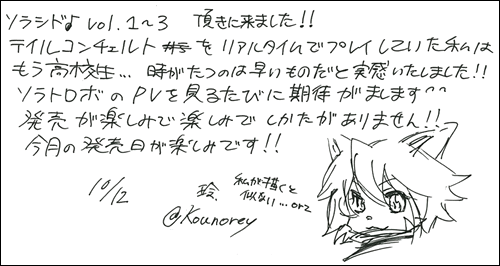 ソラシド♪ vol.1〜3 頂きに来ました!!
テイルコンチェルトをリアルタイムでプレイしていた私は
もう高校生… 時がたつのは早いものだと実感いたしました!!
ソラトロボのPVを見るたびに期待がまします^^
発売が楽しみで楽しみでしかたがありません!!
今月の発売日が楽しみです!!
10/12
玲.
@Kounorey
私が描くと
似ない…orz